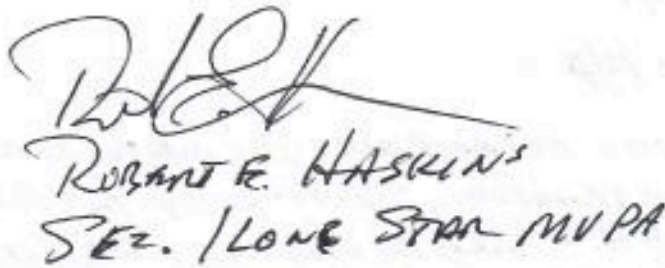 ROBERT E. HASKINS
SEC. / LONE STAR MVPA